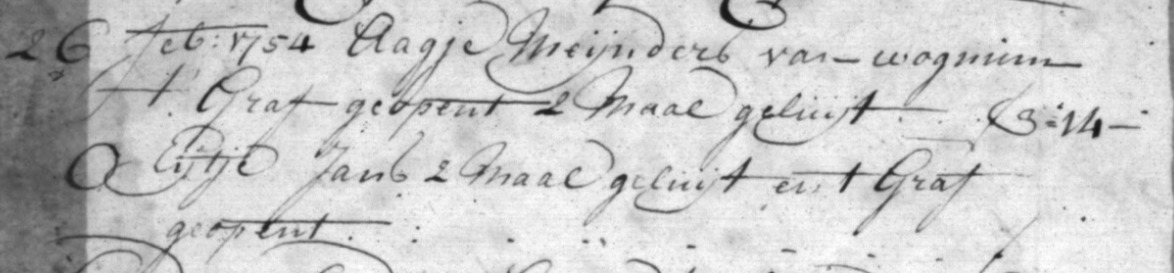 26 Feb: 1754 Aagje Meijnders van wognum
't Graf geopent 2 Maal geluijt ƒ3:14-
Eijtje Jans 2 Maal geluijt en 't Graf
geopent.